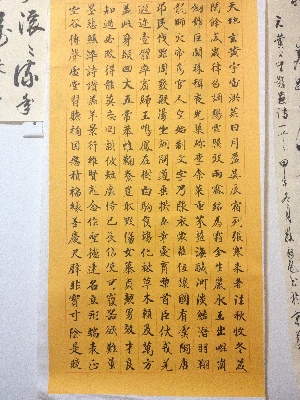 天地玄黃宇宙洪荒日月盈昃辰宿列張寒来暑往秋收冬藏
閏餘成歲律吕調陽雲騰致雨露結為霜金生麗水玉出崑崗
劍號巨闕珠稱夜光果珍李柰菜重芥薑海鹹河淡鱗潛羽翔
龍師火帝鳥官人皇始制文字乃服衣裳推位讓國有虞陶唐
弔民伐罪周發殷湯坐朝問道垂拱平章愛育黎首臣伏戎羌
遐邇壹體率賓歸王鳴鳳在樹白駒食場化被草木賴及萬方
蓋此身髮四大五常恭惟鞠養豈敢毀傷女慕貞潔男效才良
知過必改得能莫忘罔談彼短靡恃己長信使可覆器欲難量
墨悲絲染詩讚羔羊景行維賢克念作聖德建名立形端表正
空谷傳聲虛堂習聽禍因惡積福緣善慶尺璧非寶寸陰是競